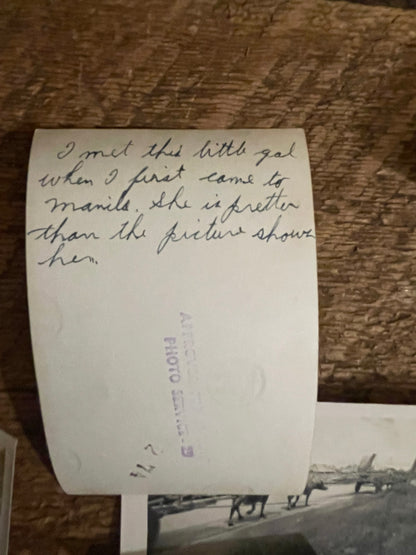 I met this little gal
when I first came to
Manila. She is pretter
than the picture shows
her.
APPROVED
PHOTO SERVICE